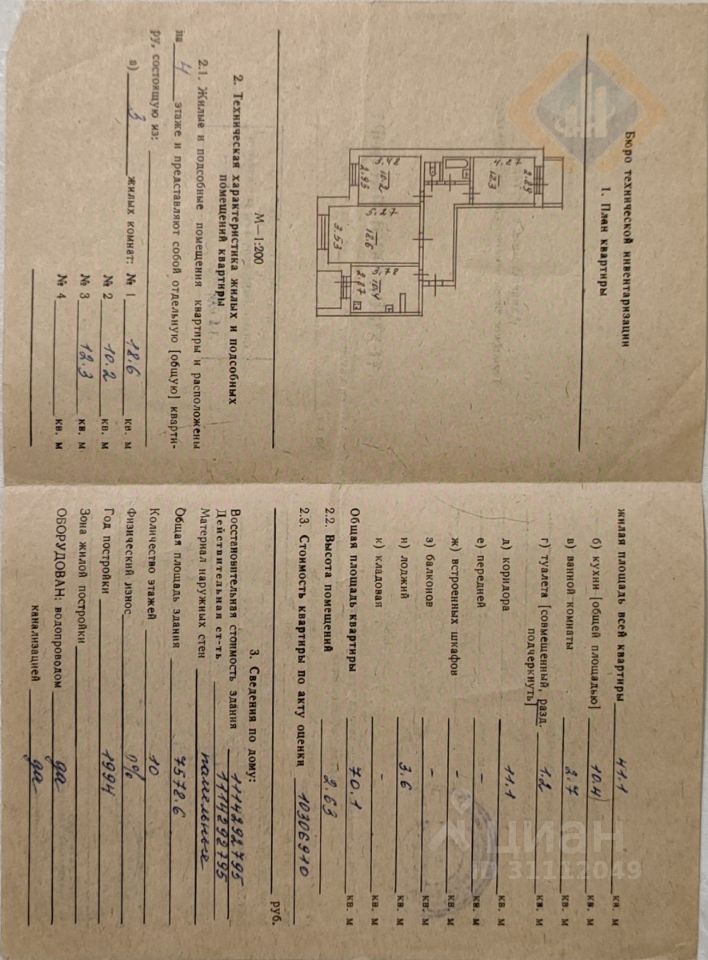 Бюро технической инвентаризации
1. План квартиры
4.27
12.3
2.89
3.48
10.2
2.93
5.27
3.53
2.87
10.4
М—1:200
2. Техническая характеристика жилых и подсобных
помещений квартиры
2.1. Жилые и подсобные помещения квартиры и расположены
на 4 этаже и представляют собой отдельную [общую] кварти-
ру, состоящую из:
а) 3 жилых комнат: № 1 18.6 кв. м
№ 2 10.2 кв. м
№ 3 12.3 кв. м
№ 4 кв. м
жилая площадь всей квартиры 41.1 кв. м
б) кухни [общей площадью] 10.4 кв. м
в) ванной комнаты 2.7 кв. м
г) туалета [совмещенный, разд.
подчеркнуть] 1.2 кв. м
д) коридора 11.1 кв. м
е) передней - кв. м
ж) встроенных шкафов - кв. м
з) балконов - кв. м
и) лоджий 3.6 кв. м
к) кладовая - кв. м
Общая площадь квартиры 70.1 кв. м
2.2. Высота помещений - 2.63
2.3. Стоимость квартиры по акту оценки 10306910
руб.
3. Сведения по дому:
Восстановительная стоимость здания 1114292795
Действительная ст-ть 1114292795
Материал наружных стен панельные
Общая площадь здания 7578.6
Количество этажей 10
Физический износ 0%
Год постройки 1994
Зона жилой постройки
ОБОРУДОВАН: водопроводом да
канализацией да
циан
ID 31112049